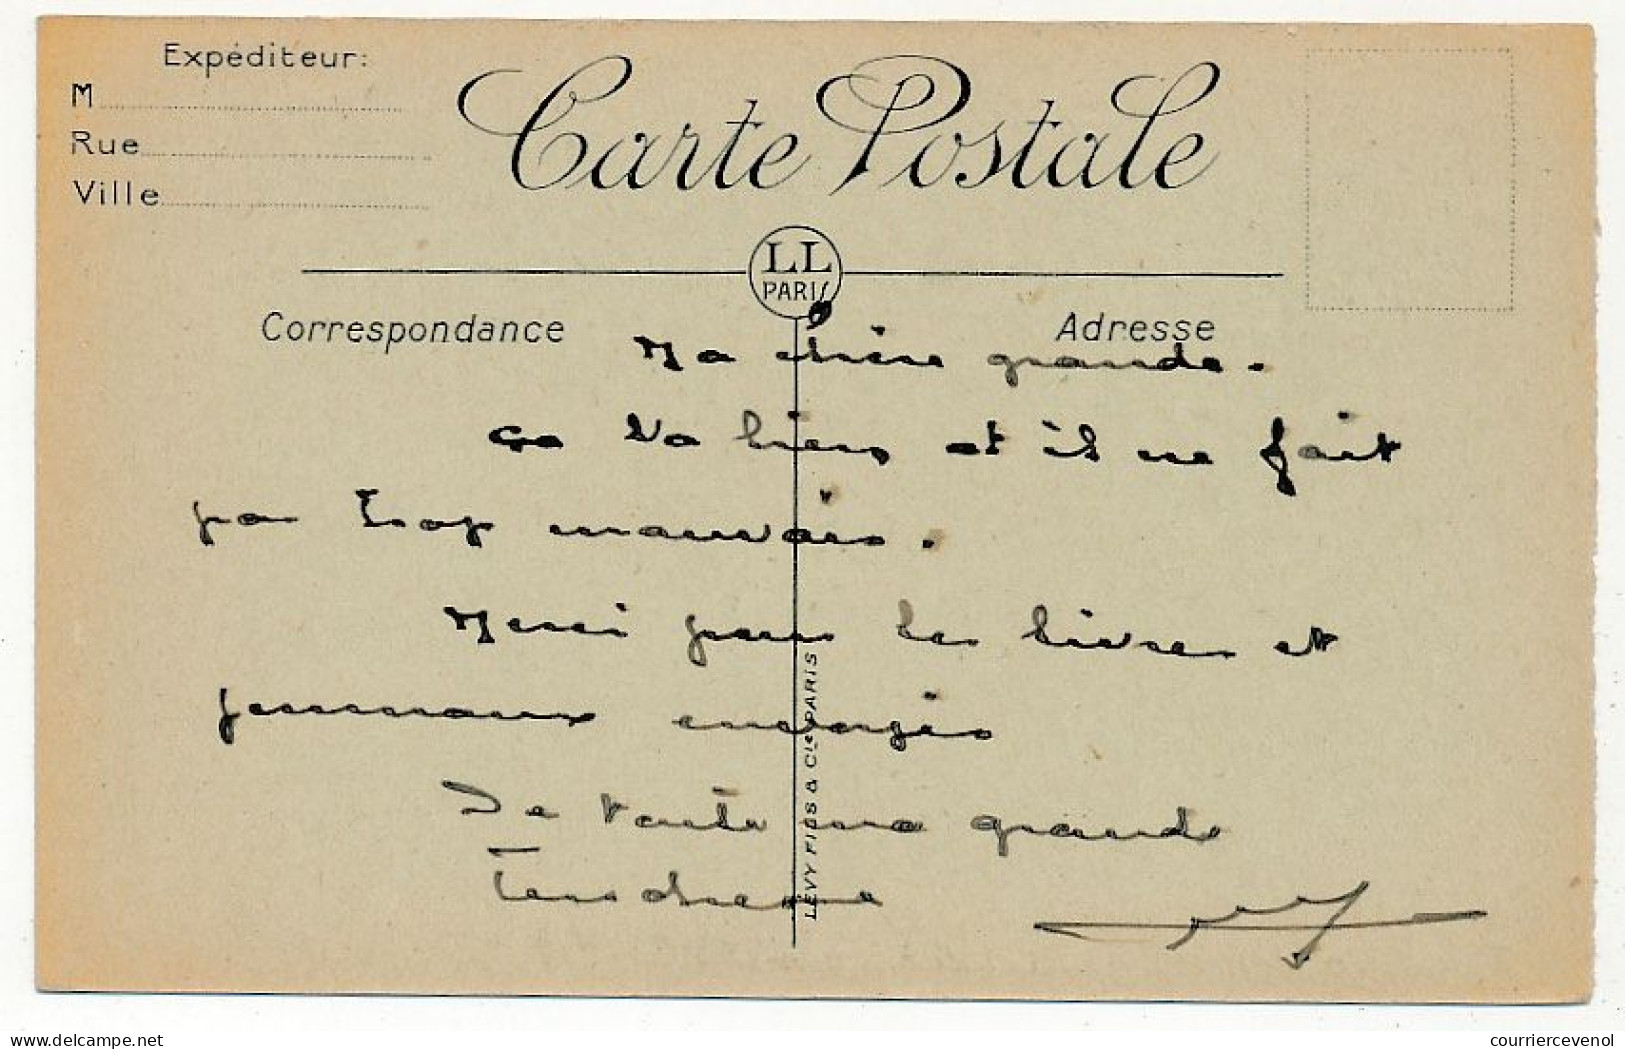 Expéditeur:
M
Rue
Ville
Carte Postale
LL
PARIS
Correspondance
Adresse
Ma chère grande.
ça va bien et il ne fait
pas trop mauvais.
Merci pour les livres et
journaux envoyés
De toute ma grande
Tendresse
LEVY FILS & Cie PARIS
www.courriercevenol.com